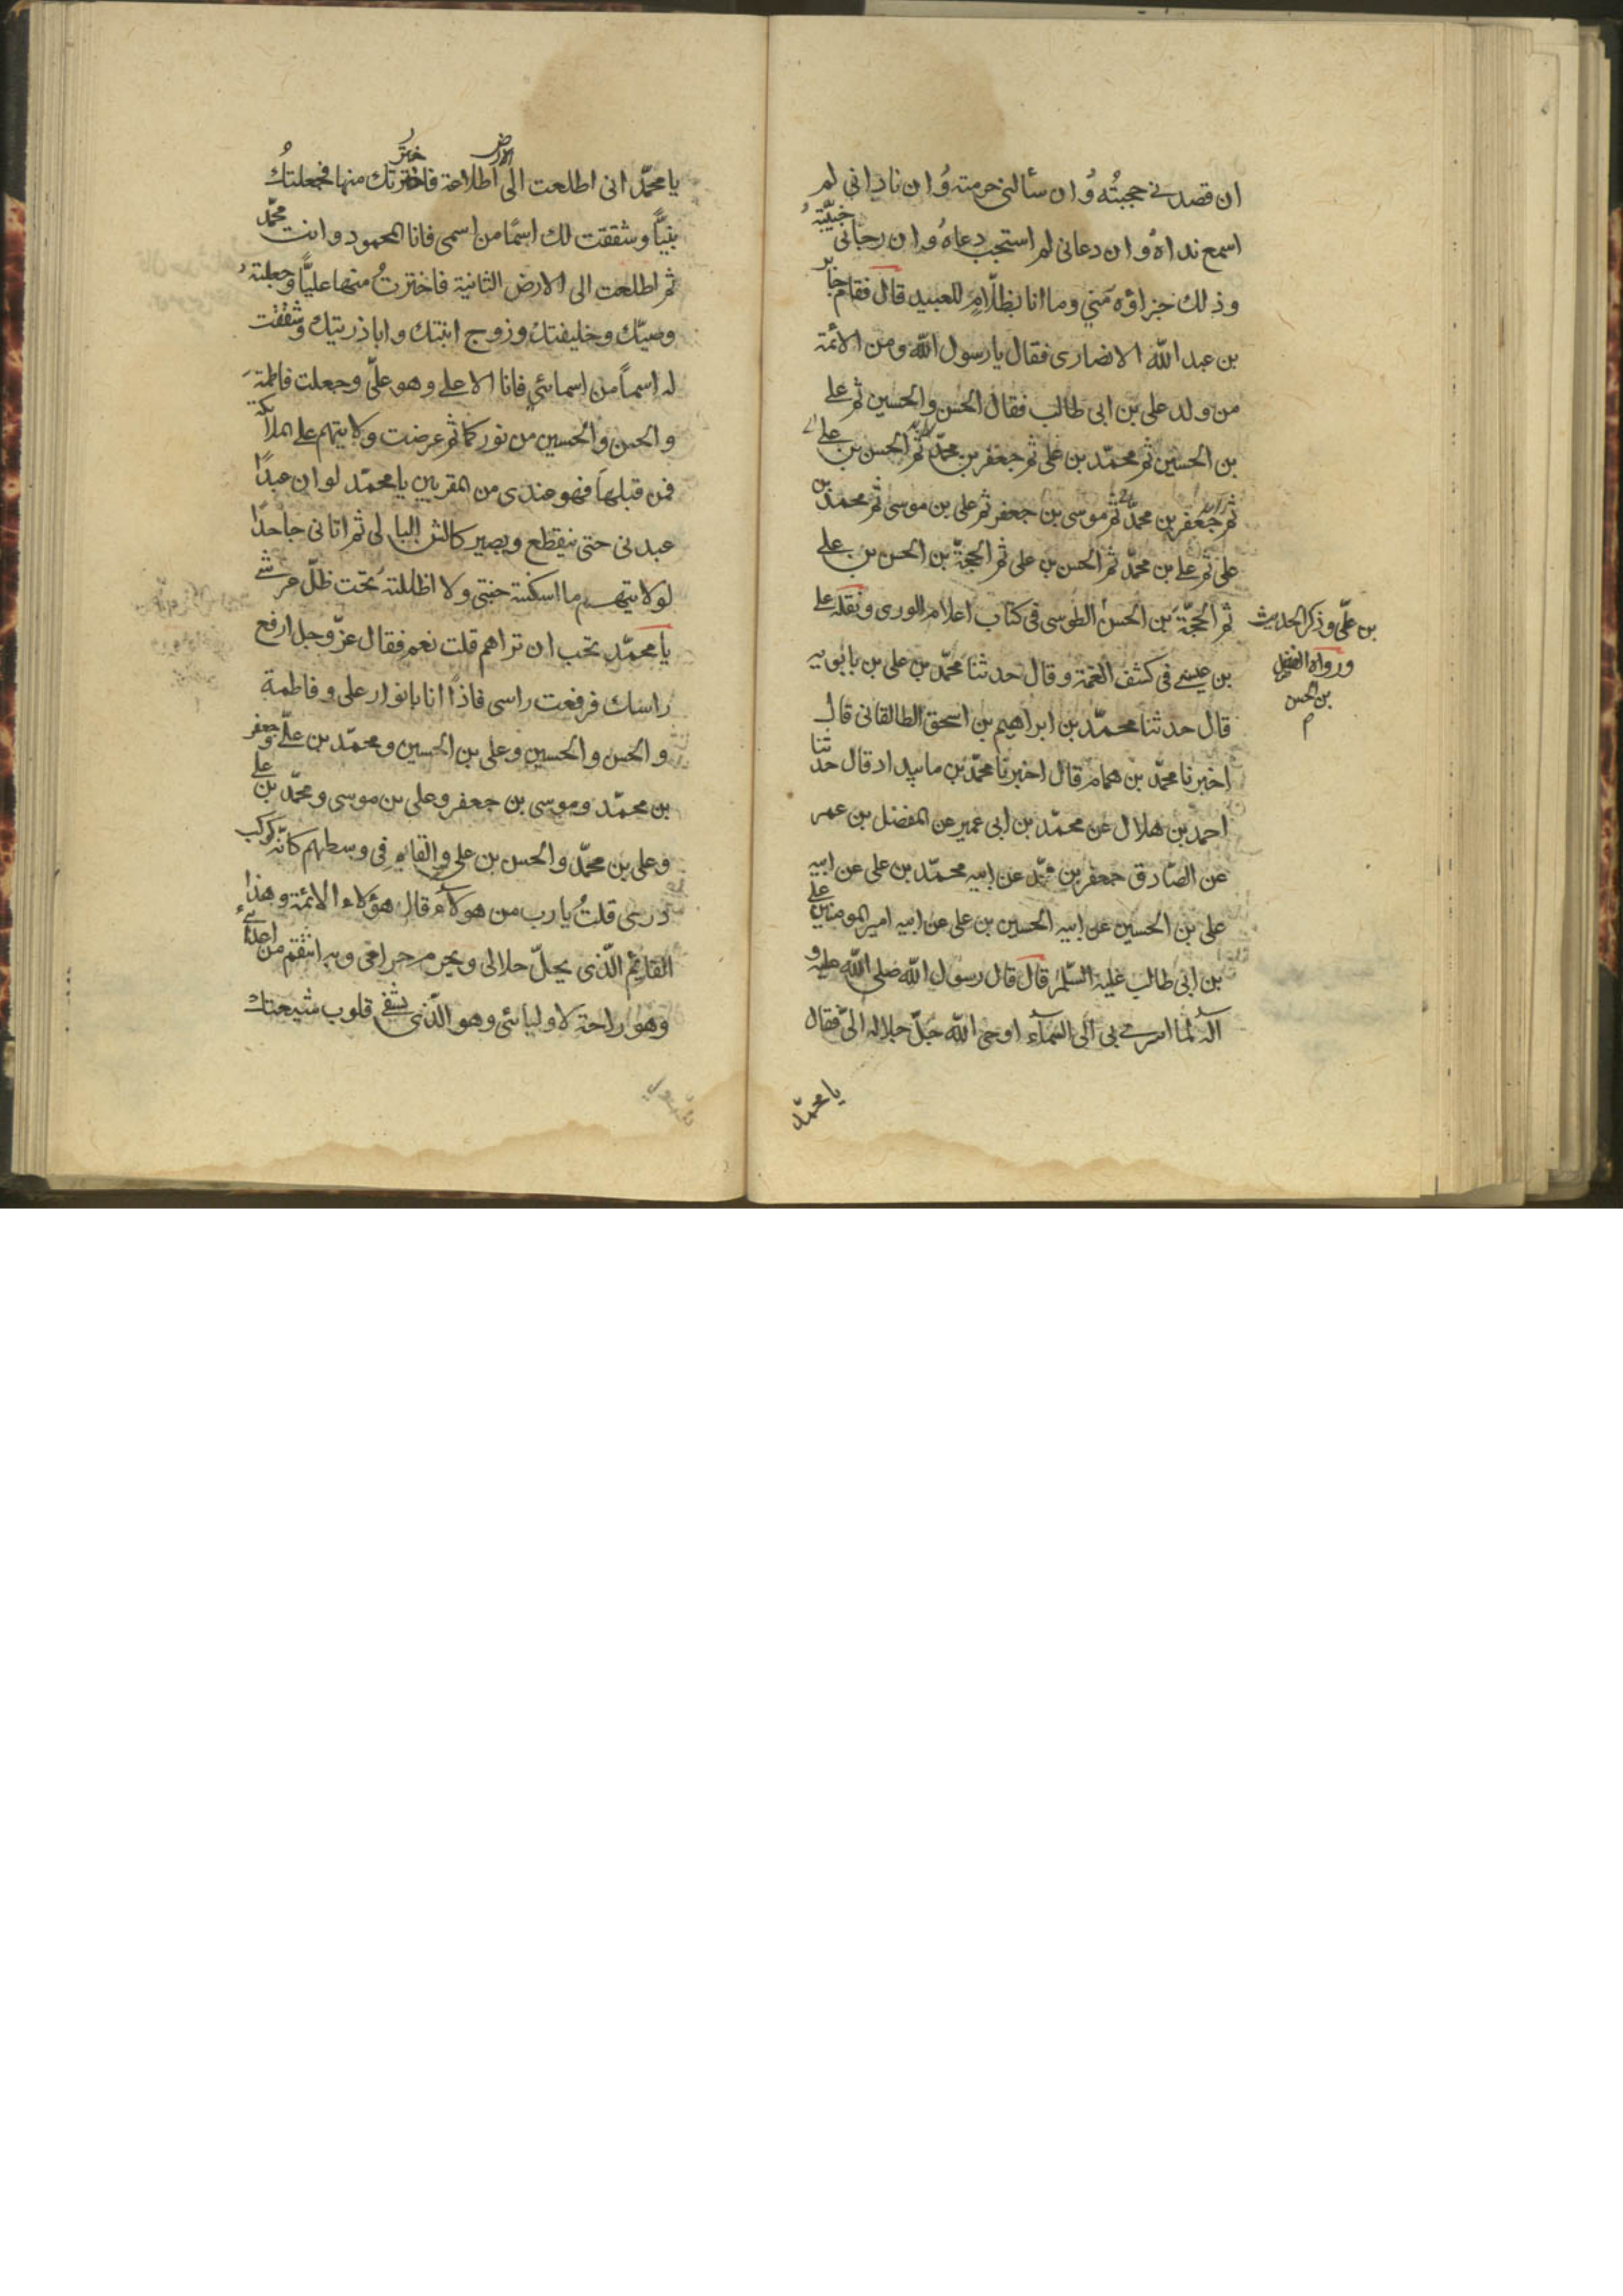 ان قصدني حجبتُه وُ ان سألني حرمته وُ ان ناداني لم
اسمع نداهُ و ان دعاني لم استجب دعاهُ و ان رجاني خيّبتهُ
و ذلك جزاؤه مني وما انا بظلّامٍ للعبيد قال فقام جابر
بن عبد الله الانصاري فقال يا رسول الله ومن الائمة
من ولد علي بن ابي طالب فقال الحسن والحسين ثم علي
بن الحسين ثم محمّد بن علي ثم جعفر بن محمّد ثم الحسن بن علي
ثم جعفر بن محمّد ثم موسى بن جعفر ثم علي بن موسى ثم محمد بن
علي ثم علي بن محمّد ثم الحسن بن علي ثم الحجّة بن الحسن بن علي
ثم الحجّة بن الحسن الطوسي في كتاب اعلام الورى ونقله علي
بن عيسى في كشف الغمة و قال حدثنا محمّد بن علي بن بابويه
قال حدثنا محمّد بن ابراهيم بن اسحق الطالقاني قال
اخبرنا محمّد بن همام قال اخبرنا محمّد بن مابنداد قال حدثنا
احمد بن هلال عن محمّد بن ابي عمير عن المفضل بن عمر
عن الصّادق جعفر بن محمّد عن ابيه محمّد بن علي عن ابيه
علي بن الحسين عن ابيه الحسين بن علي عن ابيه امير المومنين علي
بن ابي طالب عليه السّلم قال قال رسول الله صلى الله عليه و
آله لما اسري بي الى السمآء اوحى الله جلّ جلاله اليّ فقال
يا محمّد
بن علّي و ذكر الحديث
و رواه الفضل
بن الحسن
م
يا محمّد اني اطلعت الى الارض اطلاعة فاخترتك منها فجعلتُك
نبيًّا وشققت لك اسمًا من اسمي فانا المحمود و انت محمّد
ثم اطلعت الى الارض الثانية فاخترتُ منها عليًّا وجعلتهُ
وصيّك وخليفتك وزوج ابنتك و ابا ذريتك وشققت
له اسماً من اسمائي فانا الاعلى وهو عليّ وجعلت فاطمة
و الحسن والحسين من نوركما ثم عرضت ولايتهم على الملائكة
فمن قبلها فهو عندي من المقربين يا محمّد لو ان عبدًا
عبدني حتى ينقطع ويصير كالشن البالي ثم اتاني جاحدًا
لولايتهم ما اسكنته جنتي ولا اظللتهُ تحت ظلّ عرشي
يا محمّد تحب ان تراهم قلت نعم فقال عزّ وجل ارفع
راسك فرفعت راسي فاذًا انا بانوار علي و فاطمة
و الحسن و الحسين وعلي بن الحسين و محمّد بن علّي و جعفر
بن محمّد و موسى بن جعفر و علي بن موسى و محمّد بن علي
و علي بن محمّد و الحسن بن علي و القايم في وسطهم كانّه كوكب
درى قلتُ يا رب من هولآء قال هؤلاء الائمة و هذا
القايم الّذى يحلّ حلالي و يحرم حرامي و به انتقم من اعدائي
و هو راحة لاوليائي و هو الّذى يشفي قلوب شيعتك